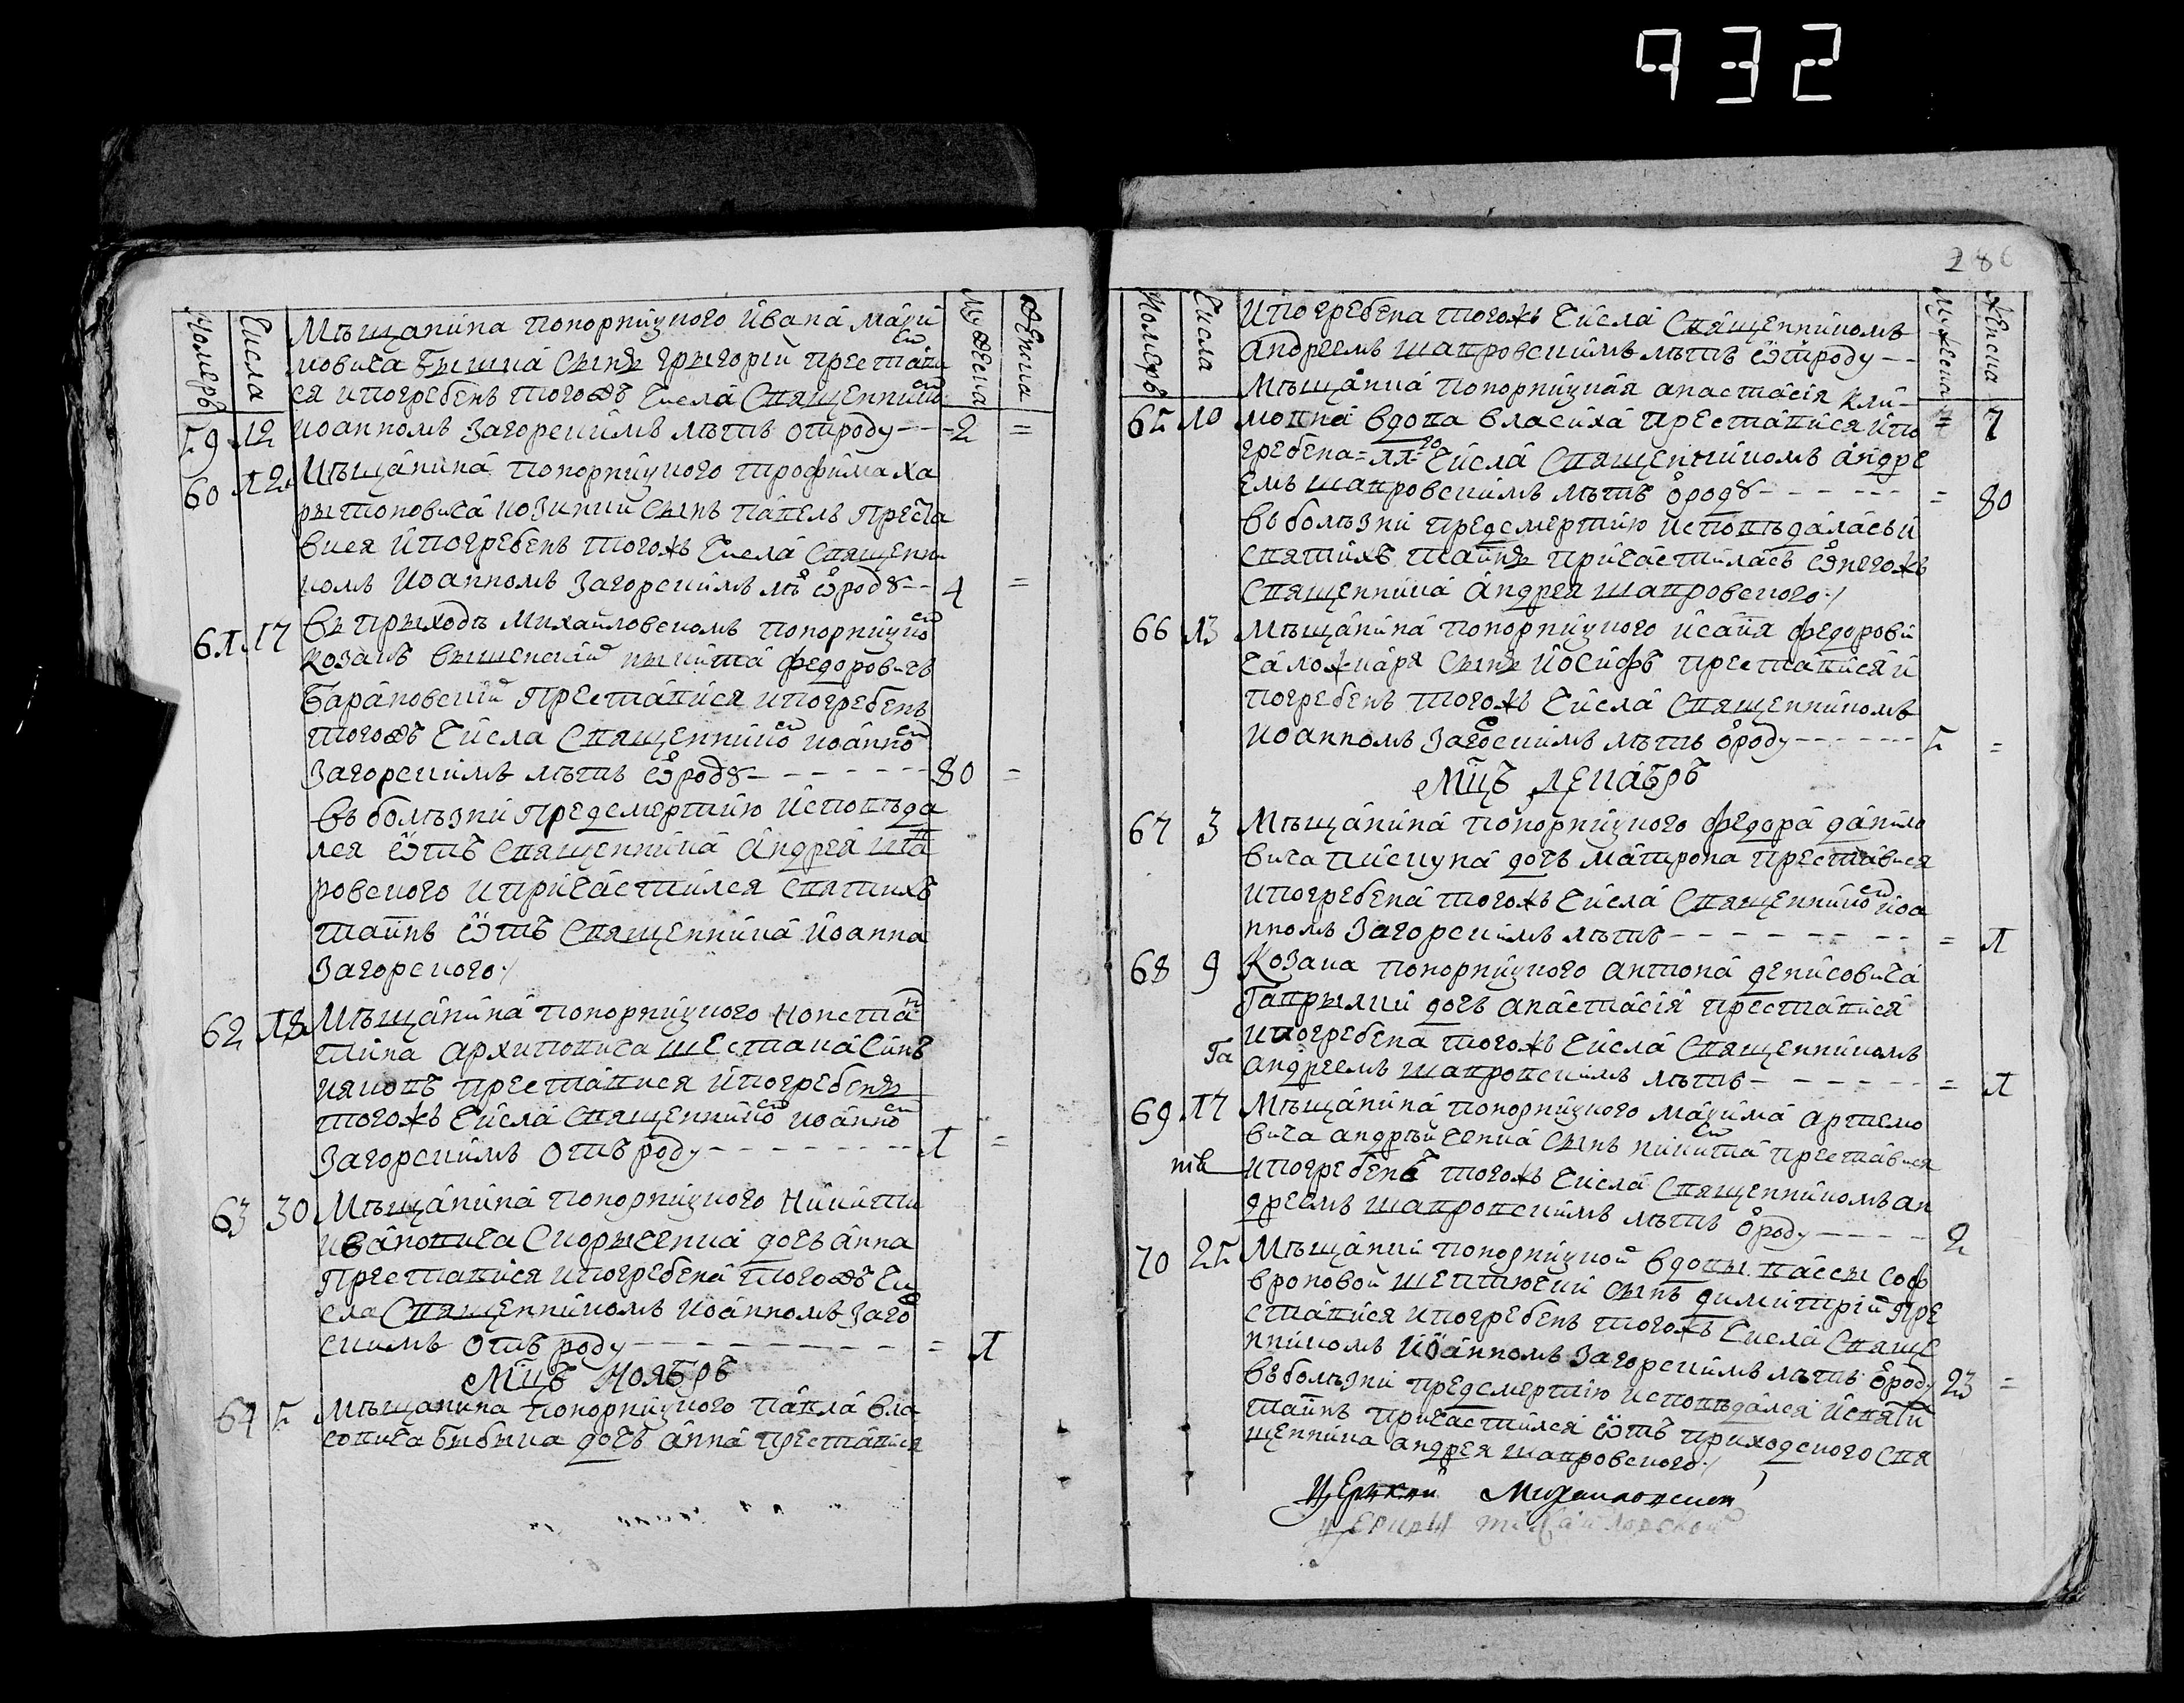 932
286
Номеръ Числа Мужеска Женска
Мѣщанина понорницкого Ивана Макси
мовича Бышка сынъ Грыгорій престави
ся и погребенъ тогожъ числа священнико
59 12 Иоанномъ Загорскимъ лѣтъ отроду - - - 2 =
60 12 Мѣщанина понорницкого Трофима Ха
рытоновича Козинки сынъ Павелъ Преста
вися и погребенъ тогожъ числа священни
комъ Иоанномъ Загорскимъ лѣ ѿ роду - - 4 =
61 17 въ прыходѣ Михайловскомъ понорницко
козакъ вышенскій Никита Федоровичъ
Барановскій Преставися и погребенъ
тогожъ числа священнико Иоанно
Загорскимъ лѣтъ ѿ роду - - - - - - 80 =
въ болѣзни предсмертию исповѣда
лся ѿтъ священника Андрея Шап
ровского и причастился святихъ
тайнъ ѿтъ священника Иоанна
Загорского
62 18 Мѣщанина понорницкого Констан
тина Архиповича Шестака синъ
Иаковъ преставися и погребенъ
тогожъ числа священнико Иоанно
Загорскимъ отъ роду - - - - - - - 1 =
63 30 Мѣщанина понорницкого Никити
Ивановича Скорыченка дочь Анна
Преставися и погребена тогожъ чи
сла священникомъ Иоанномъ Заго
скимъ отъ роду - - - - - - - - = 1
Мцъ Ноябръ
64 5 Мѣщанина понорницкого Павла Вла
совича Быбика дочь Анна преставися
Номеръ Числа Мужеска Женска
и погребена тогожъ числа священникомъ
Андреемъ Шапровскимъ лѣтъ ѿ троду - -
= 7
Мѣщанка понорницкая Анастасія Кли-
65 10 мовна вдова Власиха преставися и по
гребена = 11 го числа священникомъ Андре
емъ Шапровскимъ лѣтъ ѿ роду - - - - - = 80
въ болѣзни предсмертию исповѣдалась и
святихъ тайнъ причастилась ѿ негожъ
священника Андрея Шапровского
66 13 Мѣщанина понорницкого Исаия Федорови
ча Ложкаря сынъ Иосифъ преставися и
погребенъ тогожъ числа священникомъ
Иоанномъ Загоскимъ лѣтъ ѿроду - - - - - - 5 =
Мцъ Декабръ
67 3 Мѣщанина понорницкого Федора Данило
вича Пискуна дочь Матрона преставися
и погребена тогожъ числа священнико Иоа
нномъ Загорскимъ лѣтъ - - - - - - - = 1
68 9 Козака понорницкого Антона Денисовича
Гапрылки дочь Анастасія преставися
и погребена тогожъ числа священникомъ
Га Андреемъ Шапровскимъ лѣтъ - - - - - - = 1
69 17 Мѣщанина понорницкого Максима Артемо
вича Андрѣйченка сынъ Никита преставися
и погребенъ тогожъ числа священникомъ Ан
дреемъ Шапровскимъ лѣтъ ѿроду - - - - 2
70 25 Мѣщанки понорницкой вдовы Вассы Соф
роновой Шептючки сынъ Димитрій Пре
ставися и погребенъ тогожъ числа Свяще
нникомъ Иоанномъ Загорскимъ лѣтъ ѿроду 23 =
въ болѣзни предсмертию исповѣдался и святи
тайнъ причастился ѿтъ приходского свя
щенника Андрея Шапровского
Церкви Михаиловской